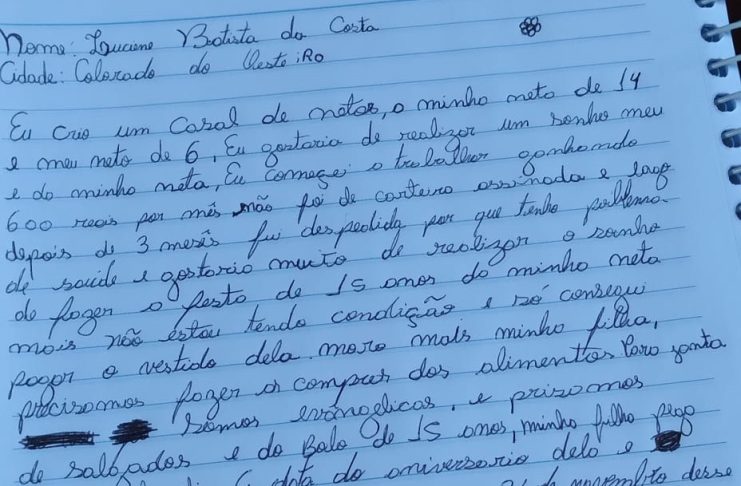 Nome: Luciene Batista da Costa
Cidade: Colorado do Oeste:RO
Eu Crio um Casal de netos, a minha neta de 14
e meu neto de 6, Eu gostaria de realizar um sonho meu
e da minha neta, Eu começei a trabalhar ganhando
600 reais por mês não foi de carteira assinada e logo
depois de 3 meses fui despedida por que tenho poblema
de saúde e gostaria muito de realizar o sonho
de fazer a festa de 15 anos da minha neta
mais não estou tendo condição e só consegui
pagar o vestido dela. mora mais minha filha,
precisamos fazer as compras dos alimentos Para janta
Somos evangélicas, e prizamos
de salgados e do Bolo de 15 anos, minha filha paga
data do aniversario dela e
novembro desse